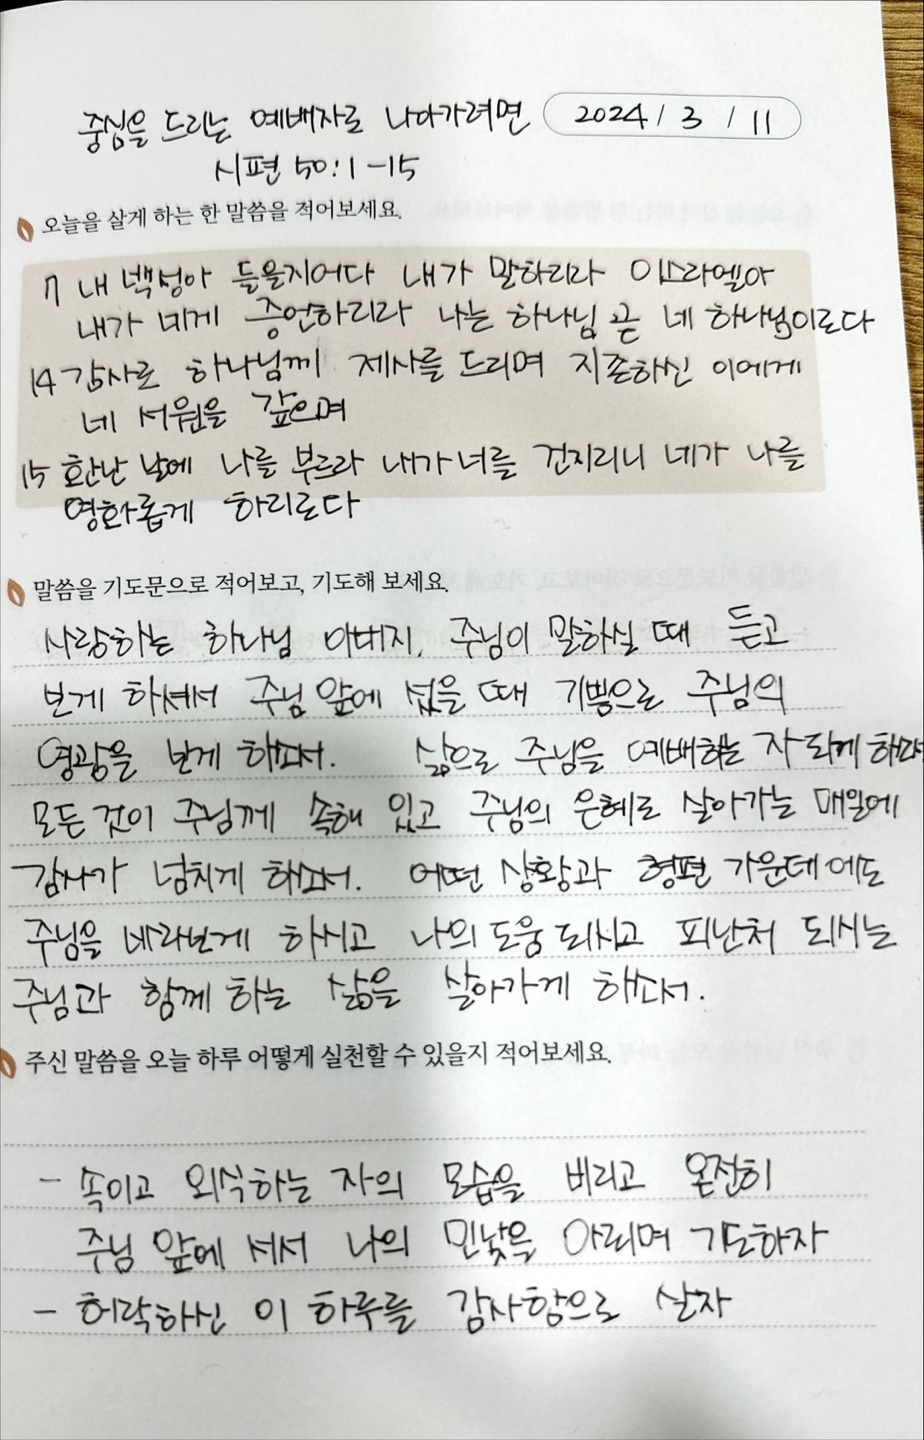 중심을 드리는 예배자로 나아가려면 2024 / 3 / 11
시편 50:1-15
오늘을 살게 하는 한 말씀을 적어보세요.
7 내 백성아 들을지어다 내가 말하리라 이스라엘아
내가 네게 증언하리라 나는 하나님 곧 네 하나님이로다
14 감사로 하나님께 제사를 드리며 지존하신 이에게
네 서원을 갚으며
15 환난 날에 나를 부르라 내가 너를 건지리니 네가 나를
영화롭게 하리로다
말씀을 기도문으로 적어보고, 기도해 보세요.
사랑하는 하나님 아버지, 주님이 말하실 때 듣고
보게 하셔서 주님 앞에 섰을 때 기쁨으로 주님의
영광을 보게 하소서. 삶으로 주님을 예배하는 자 되게 하소서
모든 것이 주님께 속해 있고 주님의 은혜로 살아가는 매일에
감사가 넘치게 하소서. 어떤 상황과 형편 가운데에도
주님을 바라보게 하시고 나의 도움 되시고 피난처 되시는
주님과 함께 하는 삶을 살아가게 하소서.
주신 말씀을 오늘 하루 어떻게 실천할 수 있을지 적어보세요.
- 속이고 외식하는 자의 모습을 버리고 온전히
주님 앞에 서서 나의 민낯을 아뢰며 기도하자
- 허락하신 이 하루를 감사함으로 살자